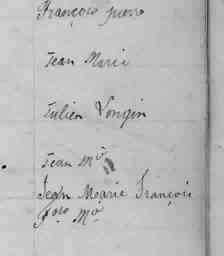 François pierre
Jean Marie
Julien Longin
Jean Mie
Jean Marie François
fois Mie